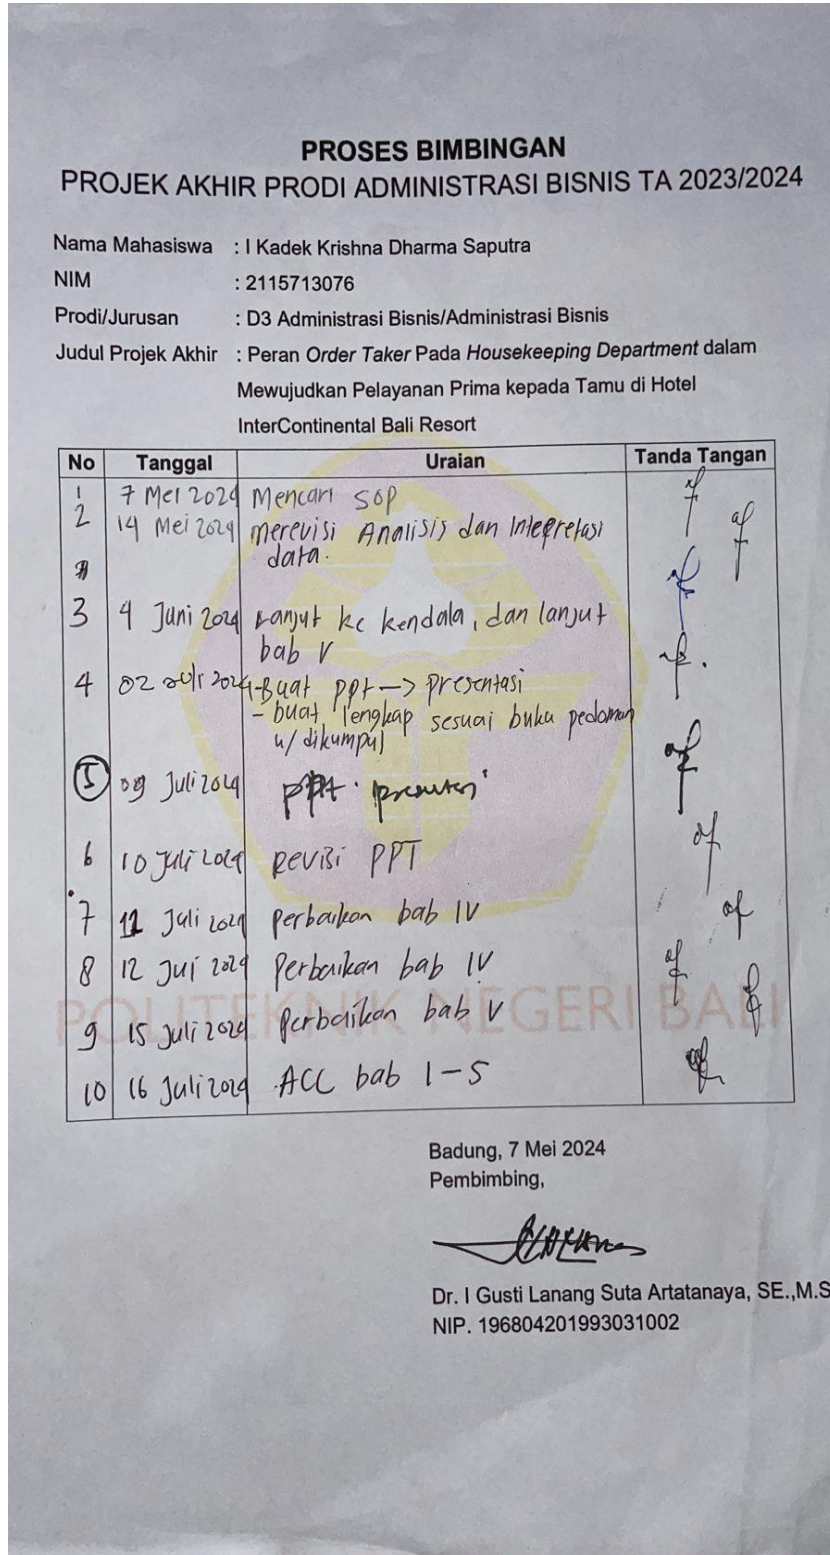 PROSES BIMBINGAN
PROJEK AKHIR PRODI ADMINISTRASI BISNIS TA 2023/2024
Nama Mahasiswa : I Kadek Krishna Dharma Saputra
NIM : 2115713076
Prodi/Jurusan : D3 Administrasi Bisnis/Administrasi Bisnis
Judul Projek Akhir : Peran Order Taker Pada Housekeeping Department dalam
Mewujudkan Pelayanan Prima kepada Tamu di Hotel
InterContinental Bali Resort
No Tanggal Uraian Tanda Tangan
1 7 Mei 2024 Mencari SOP
2 14 Mei 2024 merevisi Analisis dan Intepretasi
data.
3 4 Juni 2024 Lanjut ke kendala, dan lanjut
bab V
4 02 2024 -Buat ppt -> presentasi
- buat lengkap sesuai buku pedoman
u/ dikumpul
5 09 Juli 2024 ppt.
6 10 Juli 2024 Revisi PPT
7 11 Juli 2024 Perbaikan bab IV
8 12 Jui 2024 Perbaikan bab IV
POLITEKNIK NEGERI BALI
9 15 Juli 2024 Perbaikan bab V
10 16 Juli 2024 ACC bab 1-5
Badung, 7 Mei 2024
Pembimbing,
Dr. I Gusti Lanang Suta Artatanaya, SE.,M.S
NIP. 196804201993031002